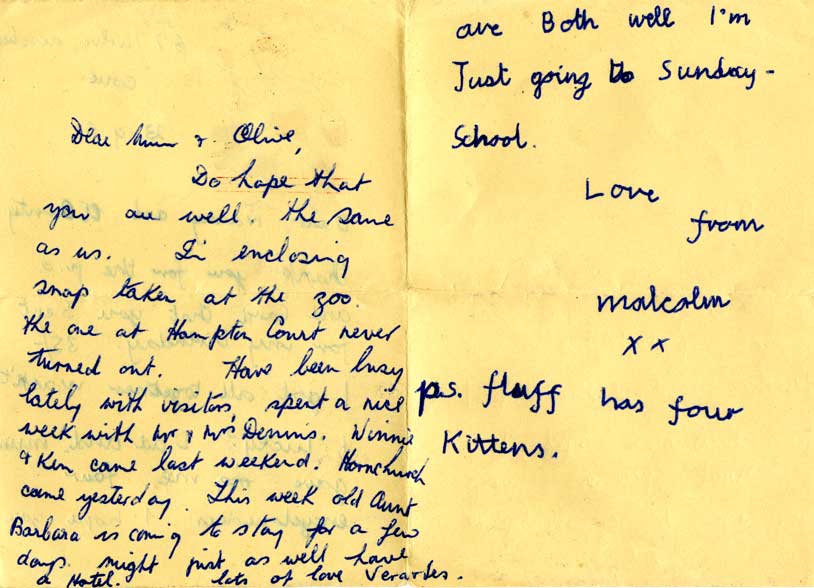 Dear Mum & Olive,
Do hope that
you are well the same
as us. I'm enclosing
snap taken at the zoo.
the one at Hampton Court never
turned out. Have been busy
lately with visitors, spent a nice
week with Mr & Mrs Dennis. Winnie
& Ken came last weekend. Hornchurch
came yesterday. This week old Aunt
Barbara is coming to stay for a few
days. might just as well have
a Hotel. lots of love
are Both well I'm
Just going to Sunday-
School.
Love
from
malcolm
x x
p.s. fluff has four
Kittens.